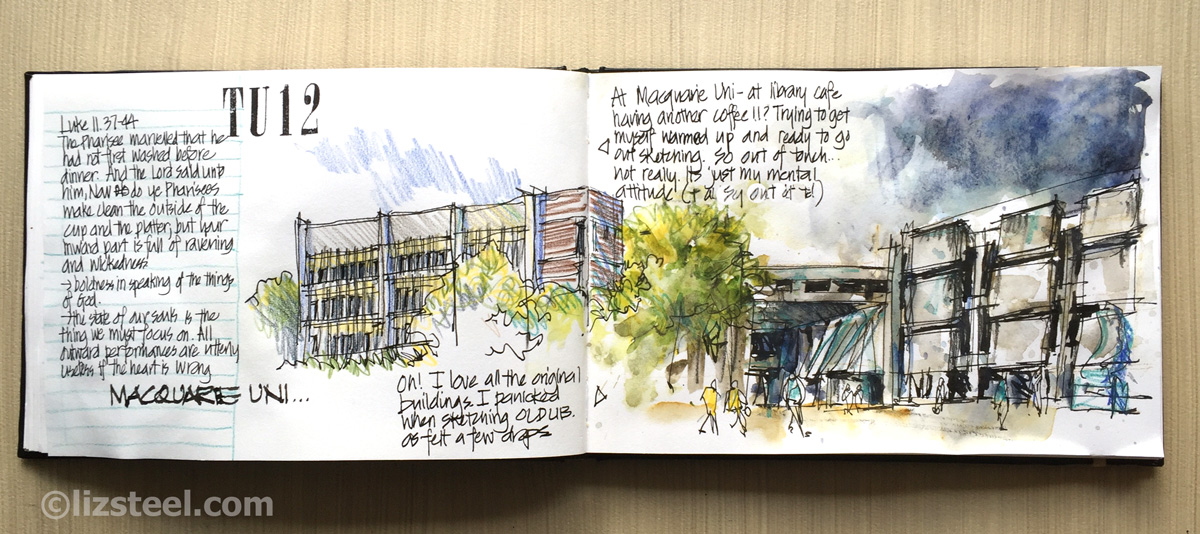 TU12
Luke 11.37-44
The Pharisee marvelled that he
had not first washed before
dinner. And the Lord said unto
him, Now do ye Pharisees
make clean the outside of the
cup and the platter, but your
inward part is full of ravening
and wickedness.
→ boldness in speaking of the things
of God.
→ the state of our souls is the
thing we must focus on. All
outward performances are utterly
useless if the heart is wrong
MACQUARIE UNI...
Oh! I love all the original
buildings. I panicked
when sketching OLD LIB.
as felt a few drops
At Macquarie Uni - at library cafe
having another coffee!! ? Trying to get
myself warmed up and ready to go
out sketching. So out of touch...
not really. It's just my mental
attitude
out of
©lizsteel.com